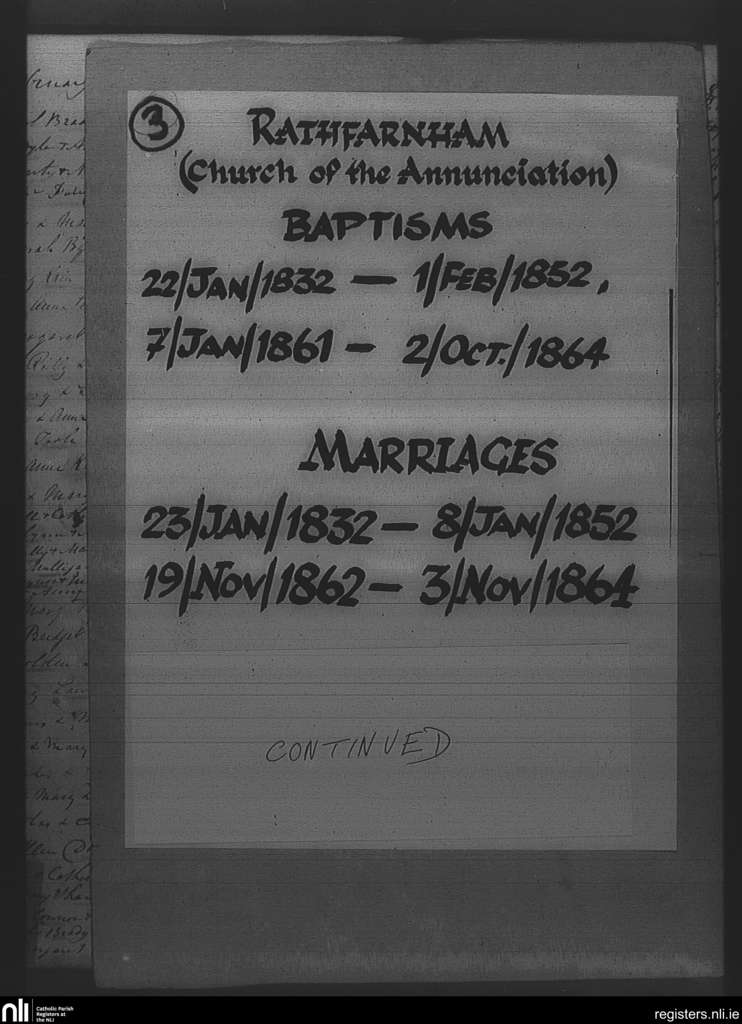 3
RATHFARNHAM
(Church of the Annunciation)
BAPTISMS
22/JAN/1832 — 1/FEB/1852,
7/JAN/1861 — 2/OCT./1864
MARRIAGES
23/JAN/1832 — 8/JAN/1852
19/NOV/1862 — 3/NOV/1864
CONTINUED
nli
Catholic Parish
Registers at
the NLI
registers.nli.ie